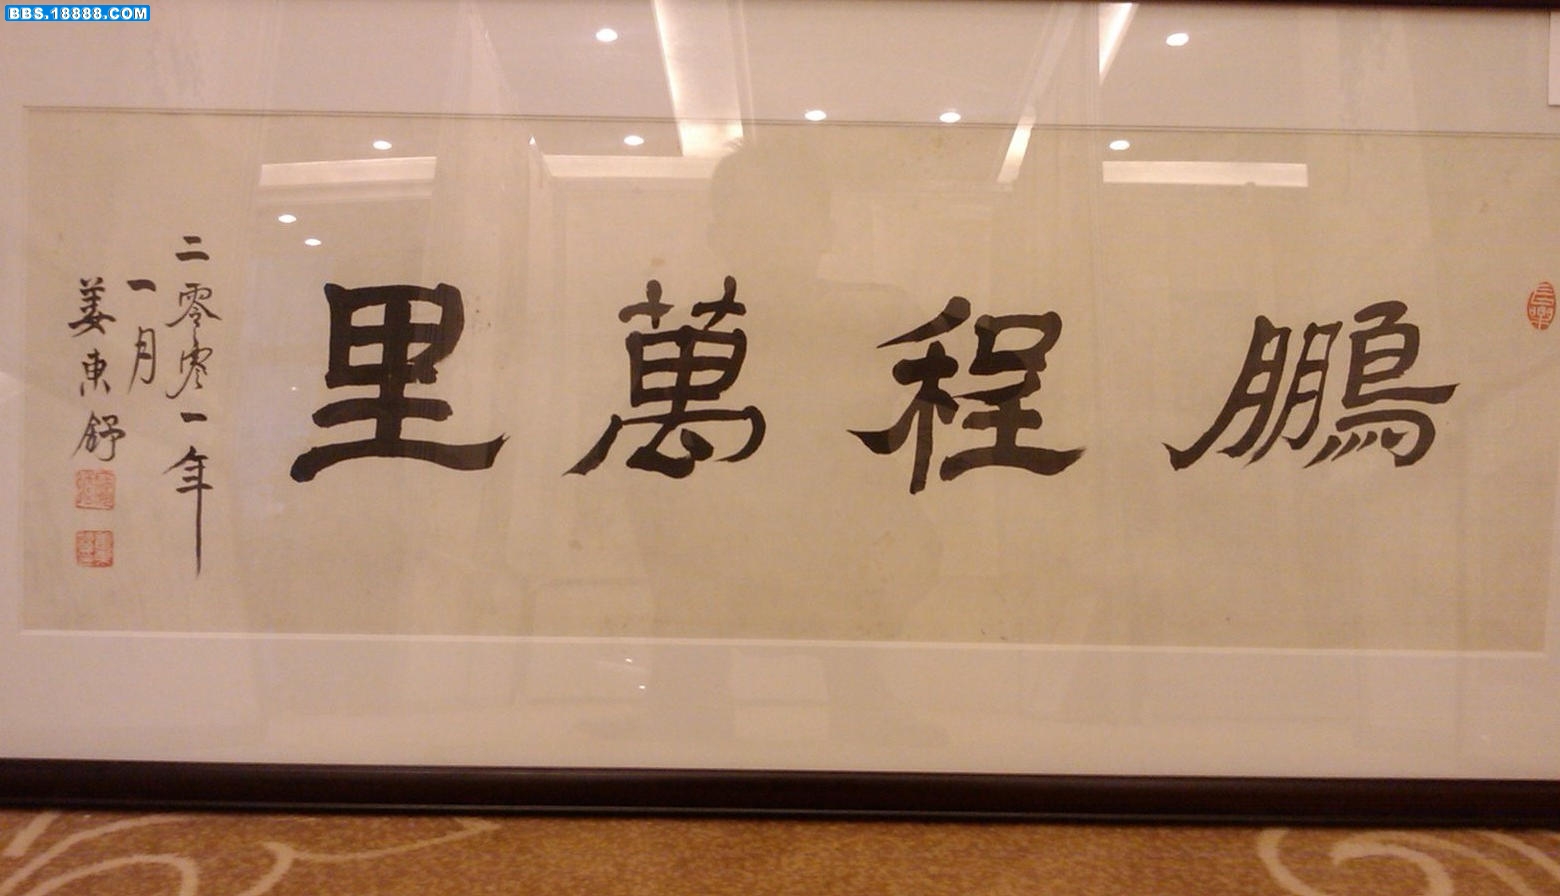 BBS.18888.COM
鵬程萬里
二零零一年
一月
姜東舒